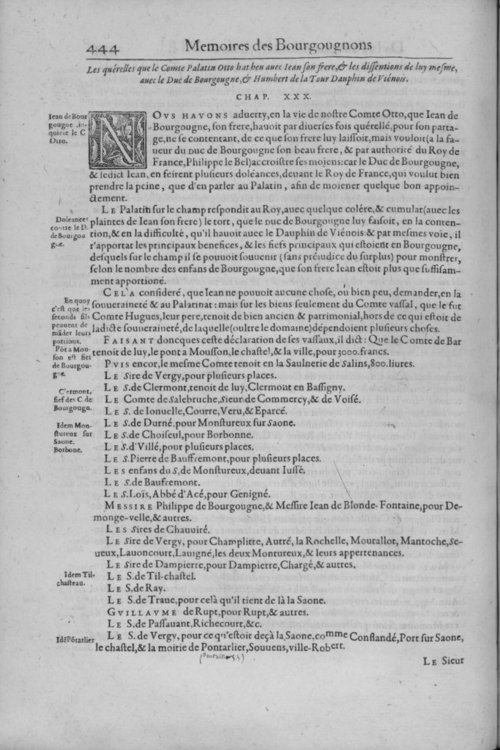 444
Memoires des Bourgougnons
Les quérelles que le Comte Palatin Otto hat heu auec Iean son frere,& les dissentions de luy mesme,
auec le Duc de Bourgougne,& Humbert de la Tour Dauphin de Viénois.
CHAP. XXX.
Iean de Bour
gougne
quiete le C
Otto.
NOVS HAVONS aduerty,en la vie de nostre Comte Otto,que Iean de
Bourgougne,son frere,hauoit par diuerses fois quérellé,pour son parta-
ge,ne se contentant,de ce que son frere luy laissoit,mais vouloit(a la fa-
ueur du Duc de Bourgougne son beau frere,& par authorité du Roy de
France,Philippe le Bel)accroistre ses moiens:car le Duc de Bourgougne,
& ledict Iean,en feirent plusieurs doléances,deuant le Roy de France,qui voulut bien
prendre la peine,que d'en parler au Palatin,afin de moiener quelque bon appoin-
ctement.
Doleances
contre le D.
de Bourgou
gne.
LE Palatin sur le champ respondit au Roy,auec quelque colére,& cumulat(auec les
plaintes de Iean son frere)le tort,que le duc de Bourgougne luy faisoit,en la conten-
tion,& en la difficulté,qu'il hauoit auec le Dauphin de Viénois & par mesmes voie,il
r'apportat les principaux benefices,& les fiefs principaux qui estoient en Bourgougne,
desquels sur le champ il se pouuoit souuenir(sans préiudice du surplus)pour monstrer,
selon le nombre des enfans de Bourgougne,que son frere Iean estoit plus que suffisam-
ment apportioné.
En quoy
c'est que les
seconds fils
peuuent de
mãder leurs
portions.
CELA consideré,que Iean ne pouuoit aucune chose,ou bien peu,demander,en la
souueraineté & au Palatinat:mais sur les biens seulement du Comte vassal,que le fut
Comte Hugues,leur pere,tenoit de bien ancien & patrimonial,hors de ce qui estoit de
ladicte souueraineté,de laquelle(oultre le domaine)dépendoient plusieurs choses.
Põt a Mous
son est fief
de Bourgou-
gne.
FAISANT doncques ceste déclaration de ses vassaux,il dict: Que le Comte de Bar
tenoit de luy,le pont a Mousson,le chastel,& la ville,pour 3000.francs.
PVIS encor,le mesme Comte tenoit en la Saulnerie de Salins,800.liures.
LE Sire de Vergy,pour plusieurs places.
Clermont,
fief des C.de
Bourgougn.
LE S.de Clermont,tenoit de luy,Clermont en Bassigny.
LE Comte de Salebruche,Sieur de Commercy,& de Voisé.
LE S. de Ionuelle,Courre,Veru,& Eparcé.
Idem Mon-
stureux sur
Saone.
Borbonne.
LE S.de Durné,pour Monstureux sur Saone.
LE S.de Choiseul,pour Borbonne.
LE S.d'Villé,pour plusieurs places.
LE S.Pierre de Bauffremont,pour plusieurs places.
LES enfans du S,de Monstureux,deuant Iussé.
LE S.de Baufremont.
LE S.de Loïs,Abbé d'Acé,pour Genigné.
MESSIRE Philippe de Bourgougne,& Messire Iean de Blonde-Fontaine,pour De-
monge-velle,& autres.
LES Sires de Chauuité.
LE Sire de Vergy,pour Champlitte, Autré,la Rochelle,Moutallot,Mantoche,Se-
ueux,Lauoncourt,Lauigné,les deux Montureux,& leurs appertenances.
LE Sire de Dampierre,pour Dampierre,Chargé,& autres.
Idem Til-
chasteau.
LE S.de Til-chastel.
LE S.de Ray.
LE S.de Traue,pour celà qu'il tient de là la Saone.
GVILLAVME de Rupt,pour Rupt,& autres.
LE S.de Passauant,Richecourt,&c.
Idé Põtarlier
LE S.de Vergy,pour ce qu'estoit deçà la Saone,comme Conflandé,Port sur Saone,
le chastel,& la moitie de Pontarlier,Souuens,ville-Robert.
LE Sieur